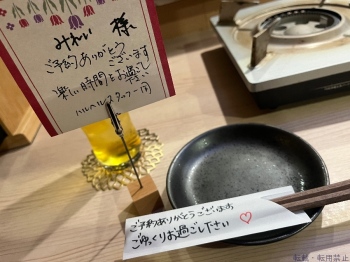 みれい 様
ご予約ありがとう
ございます
楽しい時間をお過し
スタッフ一同
ご予約ありがとうございます
ごゆっくりお過ごし下さい♡
転載・転用禁止